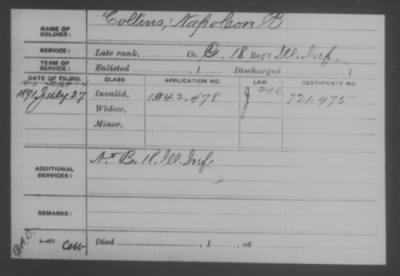 NAME OF SOLDIER: Collins, Napoleon B
SERVICE: Late rank, Co. G, 18 Reg't Ill. Inf.
TERM OF SERVICE: Enlisted , 1 Discharged , 1
DATE OF FILING. CLASS APPLICATION NO. LAW. CERTIFICATE NO.
1891 July 27 Invalid, 1042.478 J 721.475
Widow,
Minor,
ADDITIONAL SERVICES: B. Ill Inf
REMARKS:
Died , 1 , at